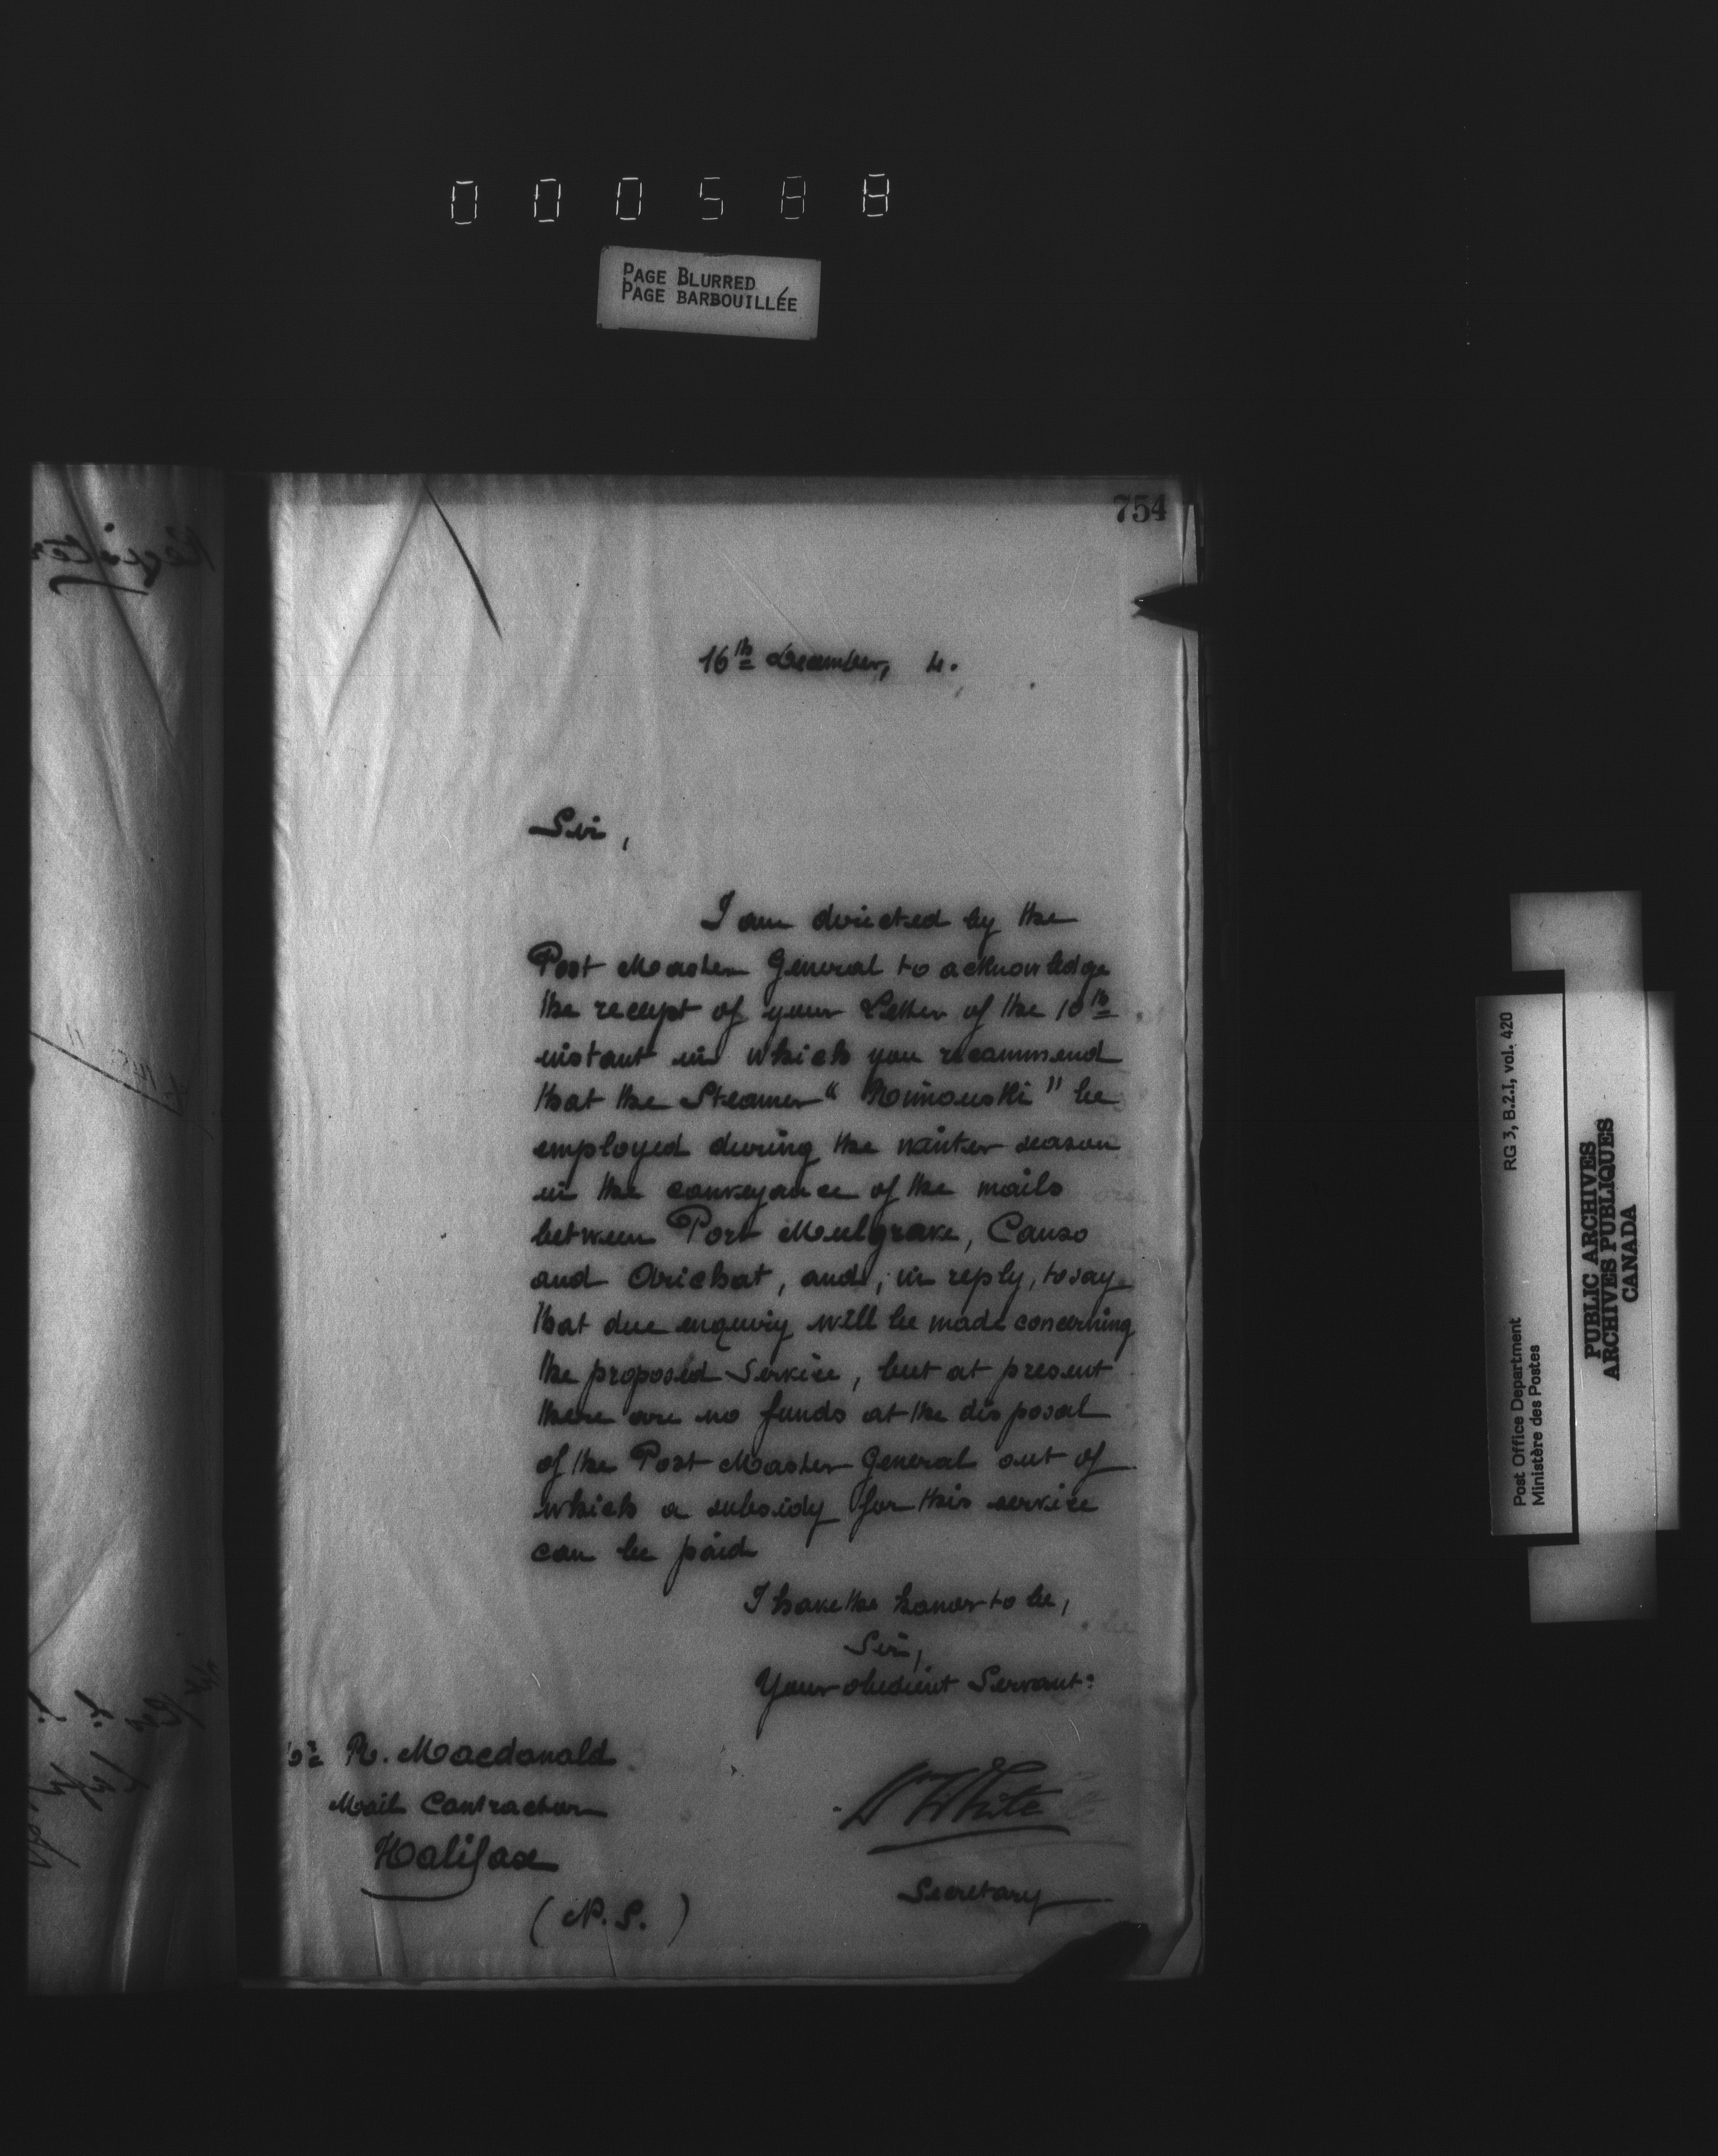 000588
PAGE BLURRED
PAGE BARBOUILLÉE
754
16th December, 4.
Sir,
I am directed by the
Post Master General to acknowledge
the receipt of your Letter of the 10th
instant in which you recommend
that the Steamer "Rimouski" be
employed during the winter season
in the conveyance of the mails
between Port Mulgrave, Canso
and Arichat, and, in reply, to say
that due enquiry will be made concerning
the proposed Service, but at present
there are no funds at the disposal
of the Post Master General out of
which a subsidy for this service
can be paid
I have the honor to be,
Sir,
Your obedient Servant:
R. Macdonald
Mail Contractor
Halifax
(N.S.)
Wm White
Secretary
RG 3, B.2.1, vol. 420
Post Office Department
Ministère des Postes
PUBLIC ARCHIVES
ARCHIVES PUBLIQUES
CANADA